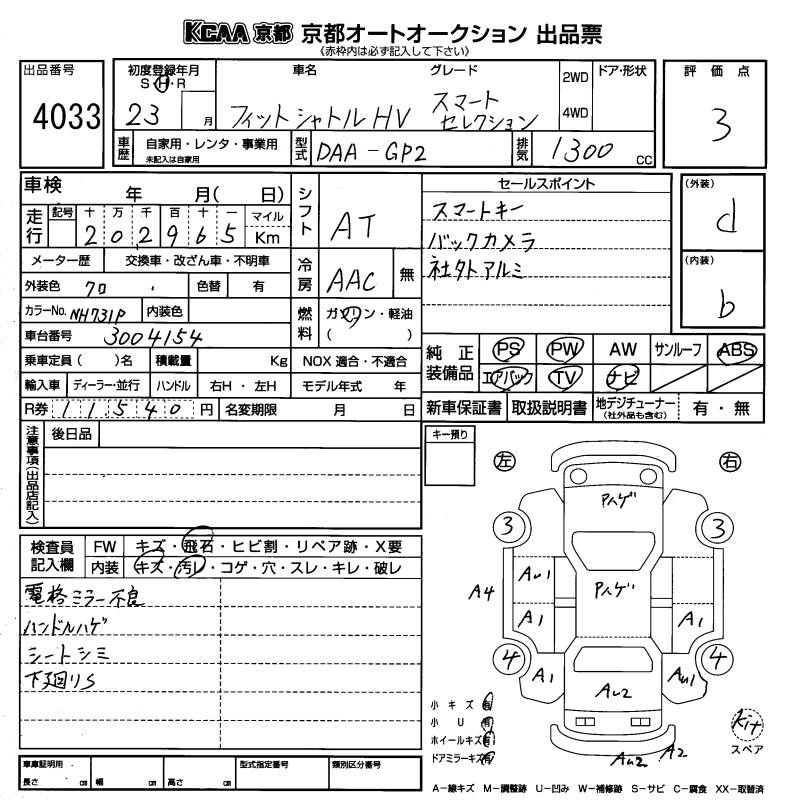 KCAA 京都 京都オートオークション 出品票
《赤枠内は必ず記入して下さい》
出品番号 初度登録年月 車名 グレード 2WD ドア・形状 評価点
S・H・R
4033 23 月 フィットシャトルHV スマート セレクション 4WD 3
車歴 自家用・レンタ・事業用 型式 DAA-GP2 排気 1300 cc
未記入は自家用
車検 年 月( 日) シフト AT セールスポイント (外装)
走行 記号 十 万 千 百 十 一 マイル スマートキー d
2 0 2 9 6 5 Km バックカメラ
メーター歴 交換車・改ざん車・不明車 冷房 AAC 無 社外アルミ (内装)
外装色 クロ 色替 有 b
カラーNo. NH731P 内装色 燃料 ガソリン・軽油
車台番号 3004154 ( )
乗車定員( )名 積載量 Kg NOX 適合・不適合 純正装備品 PS PW AW サンルーフ ABS
輸入車 ディーラー・並行 ハンドル 右H・左H モデル年式 年 エアバック TV ナビ
R券 11540円 名変期限 月 日 新車保証書 取扱説明書 地デジチューナー 有・無
(社外品も含む)
注意事項(出品店記入) 後日品 キー預り
左 右
Aハゲ
3 3
検査員記入欄 FW キズ・飛石・ヒビ割・リペア跡・X要
内装 キズ・汚レ・コゲ・穴・スレ・キレ・破レ
電格ミラー不良 A4 AU1 Aハゲ
ハンドルハゲ A1 A1
シートシミ 4 4
下廻りS A1 AU2 AU1
小キズ 有
小U 有 Kit
ホイールキズ 有 スペア
ドアミラーキズ 有 AU2 A2
車庫証明用 型式指定番号 類別区分番号
長さ cm 幅 cm 高さ cm
A-線キズ M-調整跡 U-凹み W-補修跡 S-サビ C-腐食 XX-取替済